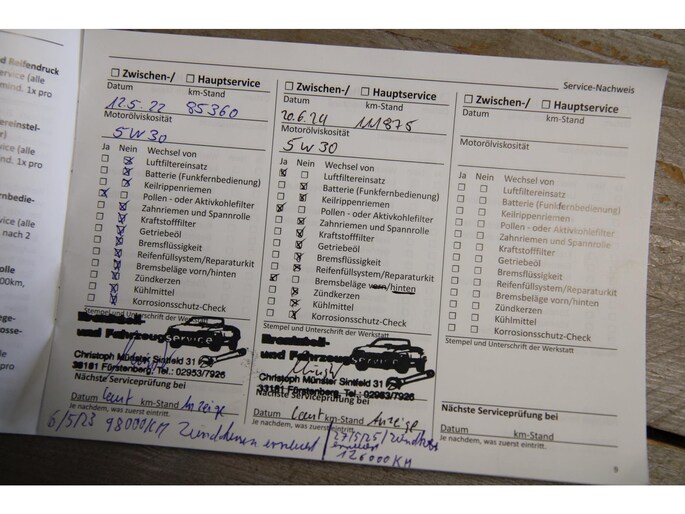 d Reifendruck
ervice (alle
mind. 1x pro
Service-Nachweis
☐ Zwischen-/ ☐ Hauptservice
Datum km-Stand
12.5.22 85360
Motorölviskosität
5W30
Ja Nein Wechsel von
Luftfiltereinsatz
Batterie (Funkfernbedienung)
Keilrippenriemen
Pollen - oder Aktivkohlefilter
Zahnriemen und Spannrolle
Kraftstofffilter
Getriebeöl
Bremsflüssigkeit
Reifenfüllsystem/Reparaturkit
Bremsbeläge vorn/hinten
Zündkerzen
Kühlmittel
Korrosionsschutz-Check
Stempel und Unterschrift der Werkstatt
und Fahrzeugservice
Christoph Münster Sintfeld 31
33181 Fürstenberg, Tel.: 02953/7926
Nächste Serviceprüfung bei
Datum laut km-Stand Anzeige
Je nachdem, was zuerst eintritt.
6/5/23 98000KM Zündkerzen erneuert
☐ Zwischen-/ ☐ Hauptservice
Datum km-Stand
20.6.24 111875
Motorölviskosität
5W30
Ja Nein Wechsel von
Luftfiltereinsatz
Batterie (Funkfernbedienung)
Keilrippenriemen
Pollen - oder Aktivkohlefilter
Zahnriemen und Spannrolle
Kraftstofffilter
Getriebeöl
Bremsflüssigkeit
Reifenfüllsystem/Reparaturkit
Bremsbeläge vorn/hinten
Zündkerzen
Kühlmittel
Korrosionsschutz-Check
Stempel und Unterschrift der Werkstatt
und Fahrzeugservice
Christoph Münster Sintfeld 31
33181 Fürstenberg, Tel.: 02953/7926
Nächste Serviceprüfung bei
Datum laut km-Stand Anzeige
Je nachdem, was zuerst eintritt.
27/5/25/
erneuert
126000KM
☐ Zwischen-/ ☐ Hauptservice
Datum km-Stand
Motorölviskosität
Ja Nein Wechsel von
Luftfiltereinsatz
Batterie (Funkfernbedienung)
Keilrippenriemen
Pollen - oder Aktivkohlefilter
Zahnriemen und Spannrolle
Kraftstofffilter
Getriebeöl
Bremsflüssigkeit
Reifenfüllsystem/Reparaturkit
Bremsbeläge vorn/hinten
Zündkerzen
Kühlmittel
Korrosionsschutz-Check
Stempel und Unterschrift der Werkstatt
Nächste Serviceprüfung bei
Datum km-Stand
Je nachdem, was zuerst eintritt.
9